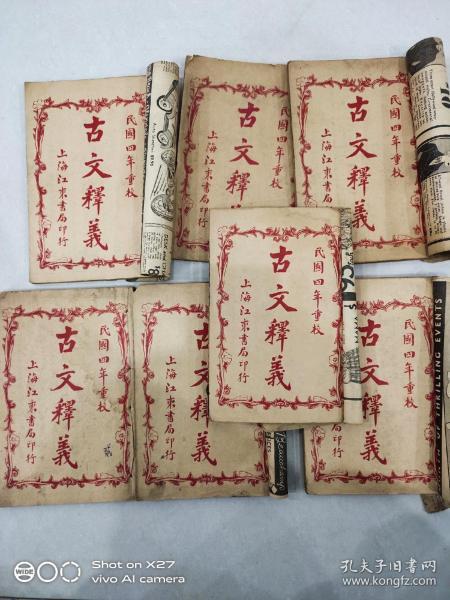 民國四年重校
古文釋義
上海江東書局印行
民國四年重校
古文釋義
上海江東書局印行
民國四年重校
古文釋義
上海江東書局印行
民國四年重校
古文釋義
上海江東書局印行
民國四年重校
古文釋義
上海江東書局印行
民國四年重校
古文釋義
上海江東書局印行
民國四年重校
古文釋義
OF THRILLING EVENTS
WIDE
Shot on X27
vivo AI camera
孔夫子旧书网
www.kongfz.com